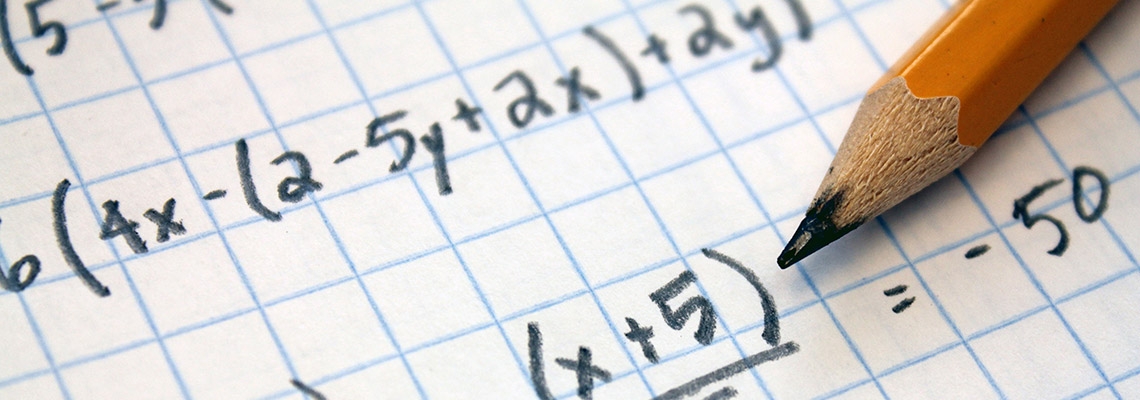 (5-
6(4x-(2-5y+2x)+2y)
(x+5) = -50